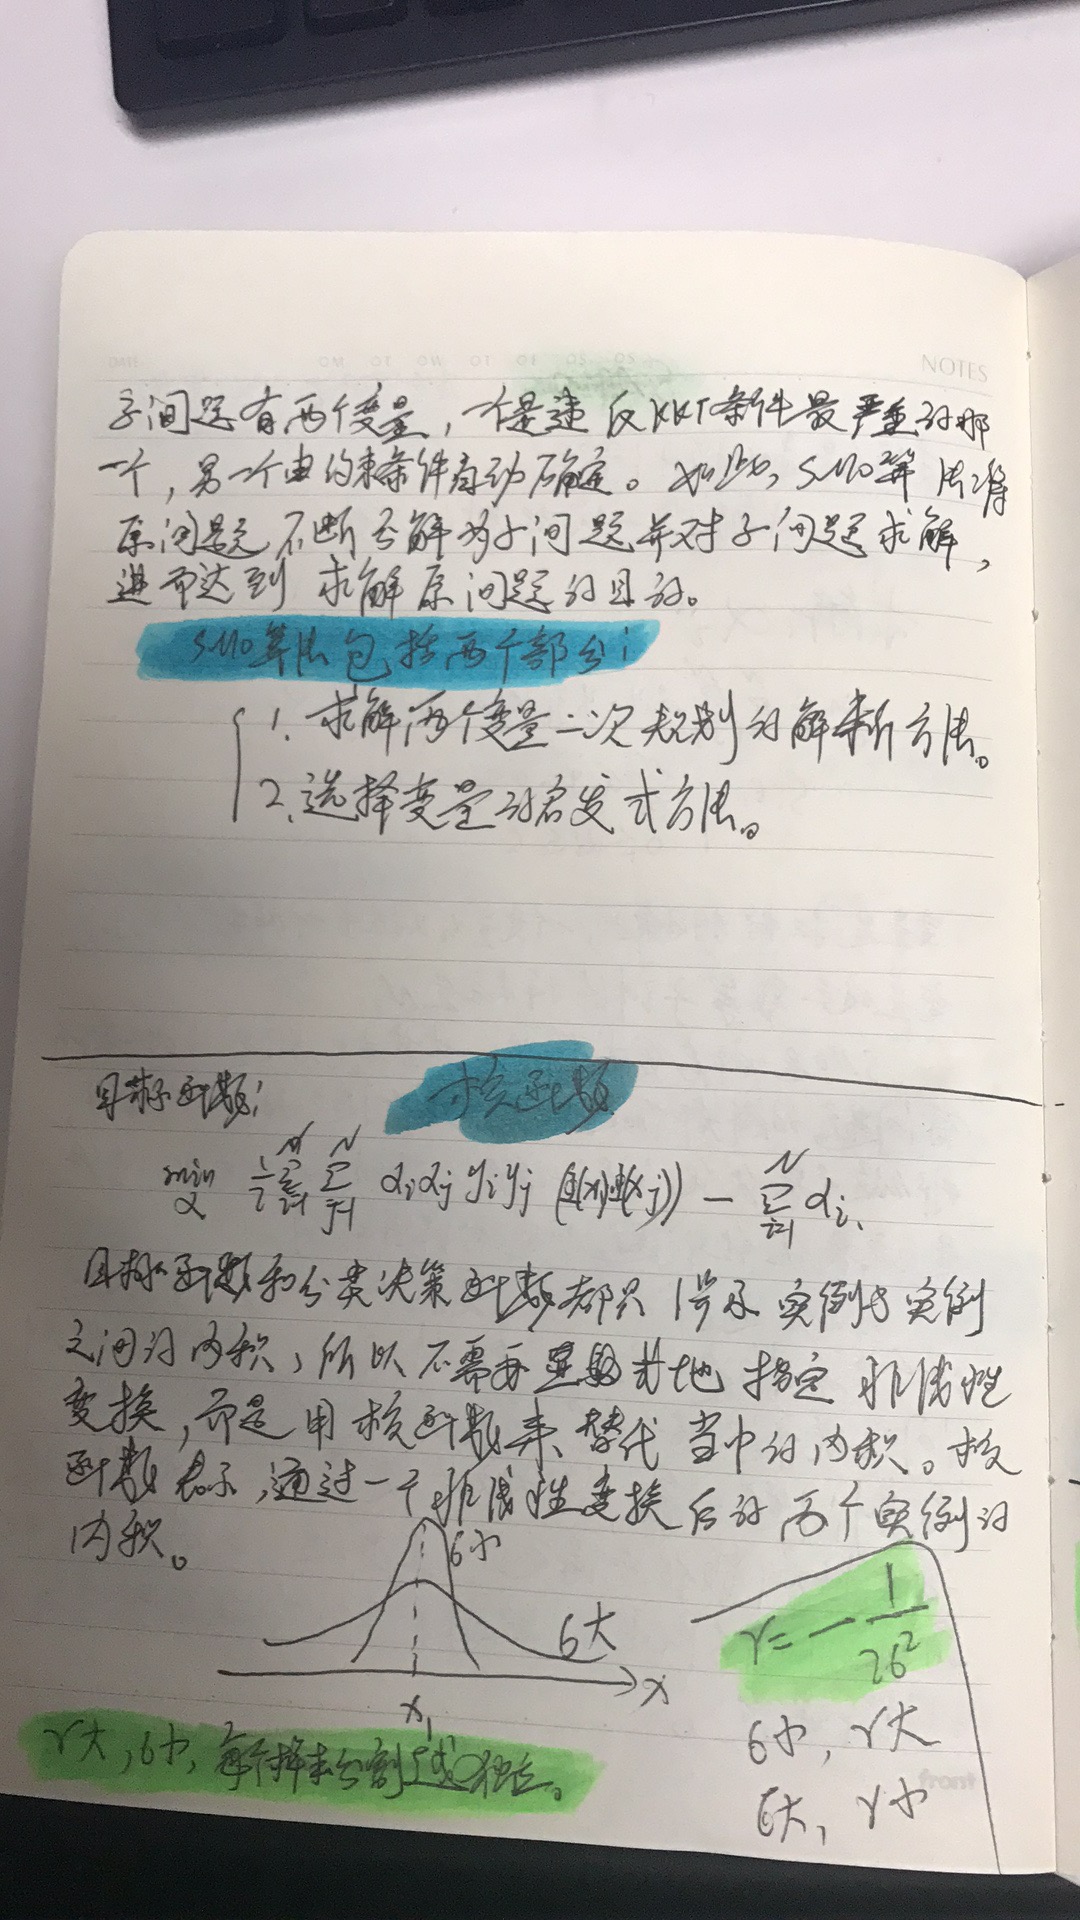 NOTES
子问题有两个变量，一个是违反KKT条件最严重的那
一个，另一个由约束条件自动确定。如此，SMO算法将
原问题不断分解为子问题并对子问题求解，
进而达到求解原问题的目的。
SMO算法包括两个部分：
1. 求解两个变量二次规划的解析方法。
2. 选择变量的启发式方法。
核函数
目标函数：
min α 1/2 Σ_{i=1}^{N} Σ_{j=1}^{N} αiαj yiyj (Φ(xi)Φ(xj)) − Σ_{i=1}^{N} αi
目标函数和分类决策函数都只涉及实例与实例
之间的内积，所以不需要显式地指定非线性
变换，而是用核函数来替代当中的内积。核
函数表示，通过一个非线性变换后的两个实例的
内积。
σ小
σ大
x
x1
γ = − 1/2σ²
σ小，γ大
σ大，γ小
front
γ大，σ小，每个样本分割独立。